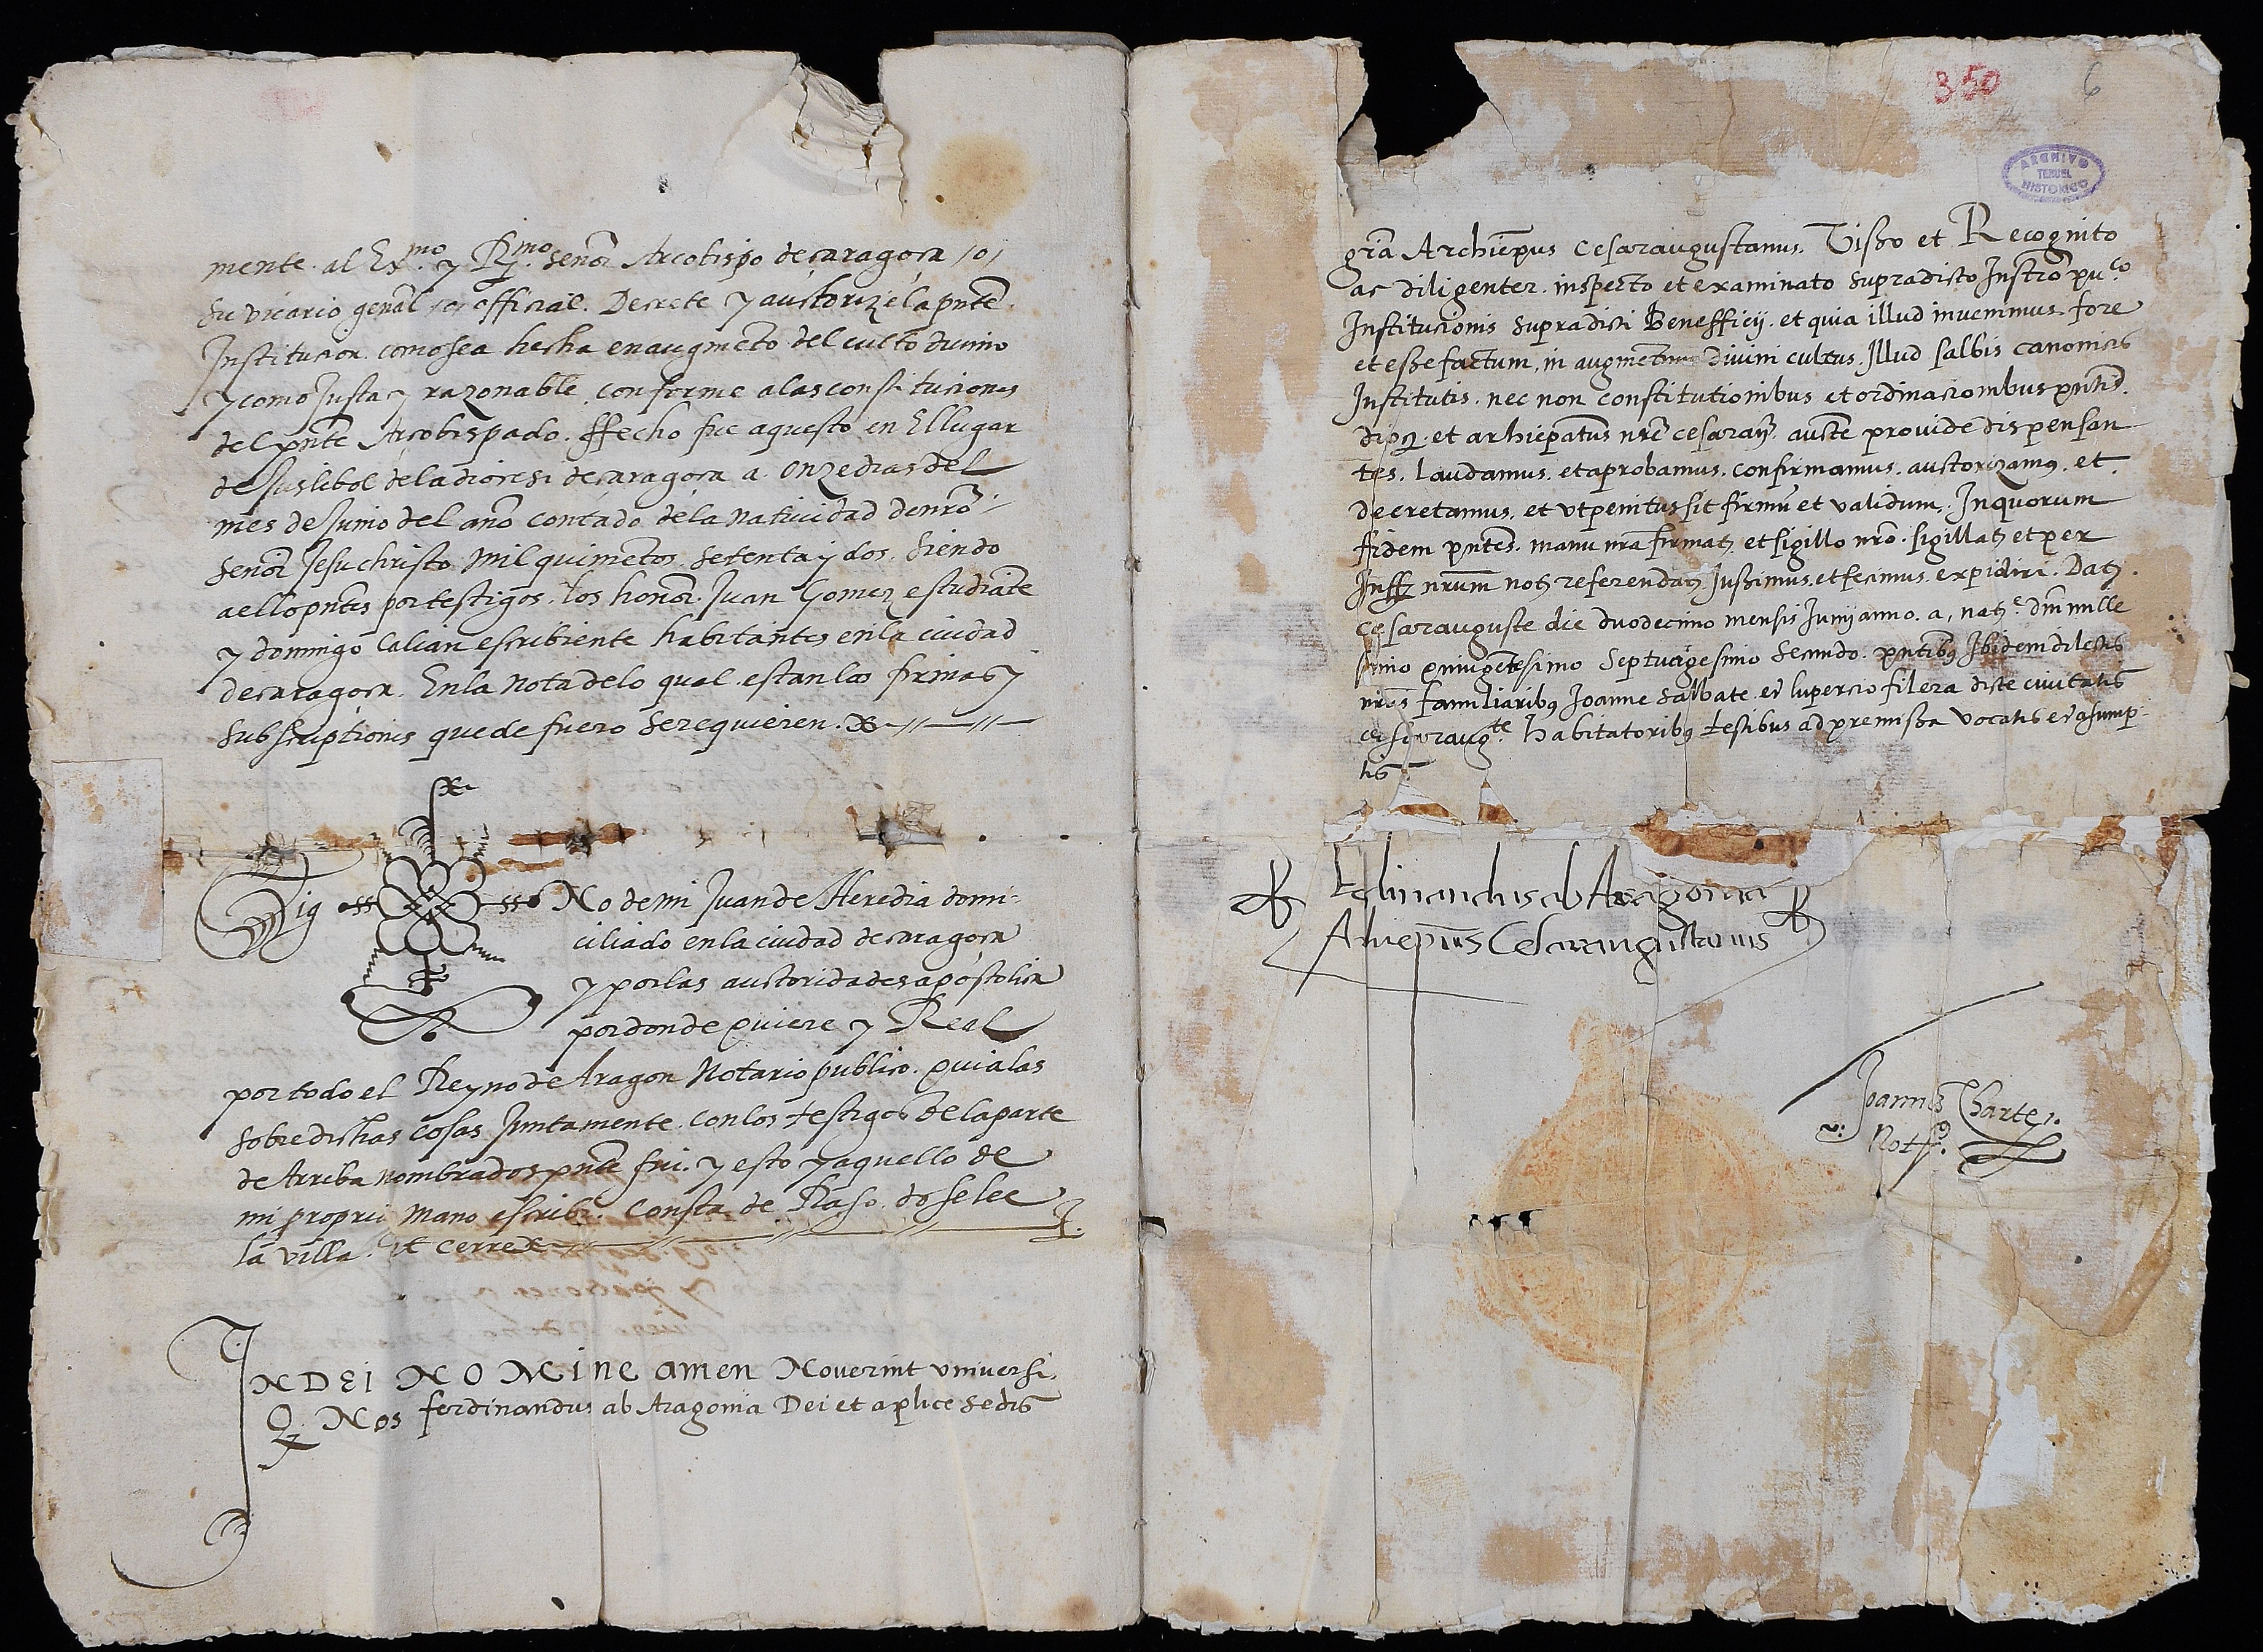 mente. al Ex.mo y R.mo señor Arcobispo de caragoça /o/
su vicario genal /o/ official. Decrete y auctorize la pnte.
Institucion. como sea hecha en augmeto del culto diuino
y como Justa y razonable. conforme a las constituciones
del pnte Arcobispado. ffecho fue aquesto en El lugar
de Juslibol de la diocesi de caragoça a. onze dias del
mes de Junio del año contado de la natiuidad de nro
señor Jesuchristo Mil quinientos. setenta y dos. siendo
a ello pntes por testigos. los honor. Juan Gomez estudiante
y domingo Calian escribiente habitantes en la ciudad
de caragoça. En la Nota de lo qual estan las firmas y
subscriptiones que de fuero se requieren.
Sig No de mi Juan de Heredia domi-
ciliado en la ciudad de caragoça
y por las auctoridades apostolica
por donde quiere y Real
por todo el Reyno de Aragon Notario publico. qui a las
sobredichas cosas Juntamente. con los testigos de la parte
de Arriba nombrados pnte fui. y esto y aquello de
mi propria mano escribi. Consta de Raso. do se lee
la villa. et cerre
IN DEI NOMINE amen Nouerint vniuersi
Q. Nos ferdinandus ab Aragonia Dei et aplice sedis
350
6
ARCHIVO
TERUEL
HISTORICO
gra Archiepus cesaraugustanus. Visso et Recognito
ac diligenter. inspecto et examinato supradicto Instro pu.co
Institucionis supradicti Benefficij. et quia illud inuenimus fore
et esse factum, in augmentum diuini cultus. Illud salbis canonicis
Institutis. nec non constitutionibus et ordinacionibus pntis.
dioq. et archiepatus nre cesaraug. aucte prouide dispensan
tes. Laudamus. et aprobamus. confirmamus. auctorizamq. et.
decretamus. et vt penitus sit firmu et validum. In quorum
fidem pntes. manu nra firmatz et sigillo nro. sigillatz et per
Inff nrum notz referendatz Jussimus. et fecimus. expidiri. Datz.
cesarauguste die duodecimo mensis Junij anno. a, natz.e dni mille
simo quingetesimo Septuagesimo secundo. pntibq Ibidem dilectis
nros familiaribq Joanne salbate. et lupercio filera dicte ciuitatis
cesaraug.te habitatoribq testibus ad premissa vocatis et asump-
tis
Ferdinandus ab Aragonia
Arhiepus Cesaraugustanus
Joannes Charte.
Not.